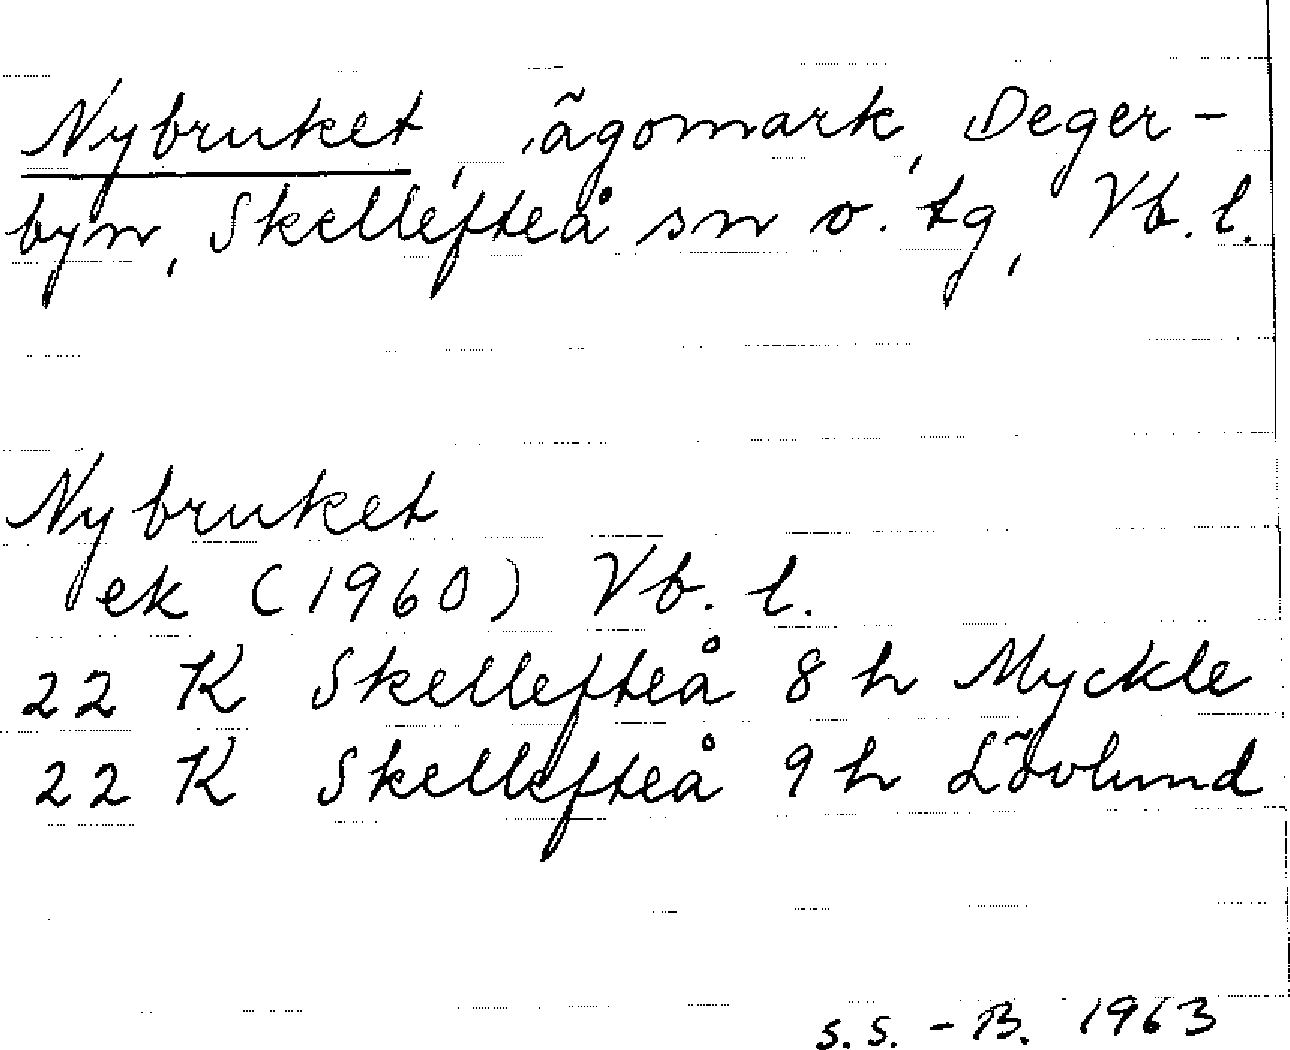 Nybruket, ägomark, Deger-
byn, Skellefteå sn o. tg, Vb. l.
Nybruket
ek (1960) Vb. l.
22 K Skellefteå 8 h Myckle
22 K Skellefteå 9 h Lövlund
S.S. - B. 1963